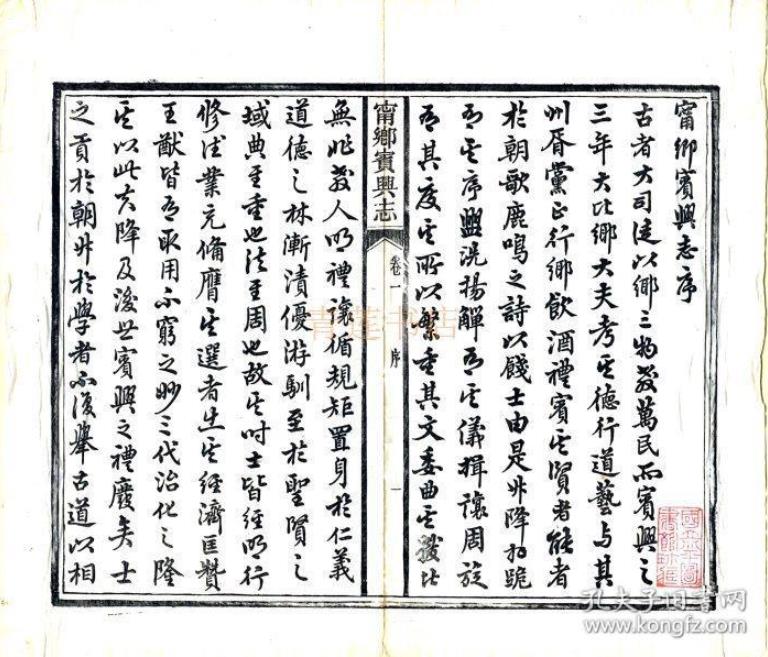 甯鄉賓興志序
古者大司徒以鄉三物教萬民而賓興之
三年大比鄉大夫考其德行道藝与其
州長黨正行鄉飲酒禮賓其賢者能者
於朝歌鹿鳴之詩以餞士由是升降拜跪
有其序盥洗揚觶有其儀揖讓周旋
有其度其所以繁重其文委曲其
甯鄉賓興志
卷一
序
一
無非教人以禮讓循規矩置身於仁義
道德之林漸漬優游馴至於聖賢之
域典至重也法至周也故其时士皆經明行
修德業充備膺其選者出其經濟匡贊
王猷皆有取用不窮之妙三代治化之隆
其以此夫降及後世賓興之禮廢矣士
之貢於朝升於學者不復舉古道以相
青莲书店
孔夫子旧书网
www.kongfz.com